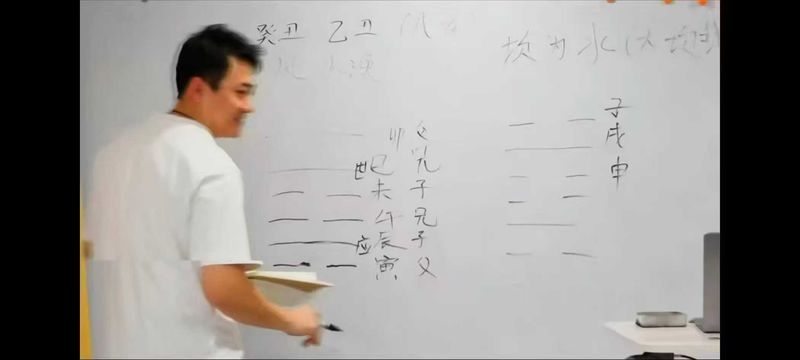 癸丑 乙丑
坎为水(大坎
卯 父
世巳 兄
未 子
午 兄
应辰 子
寅 父
子
戌
申